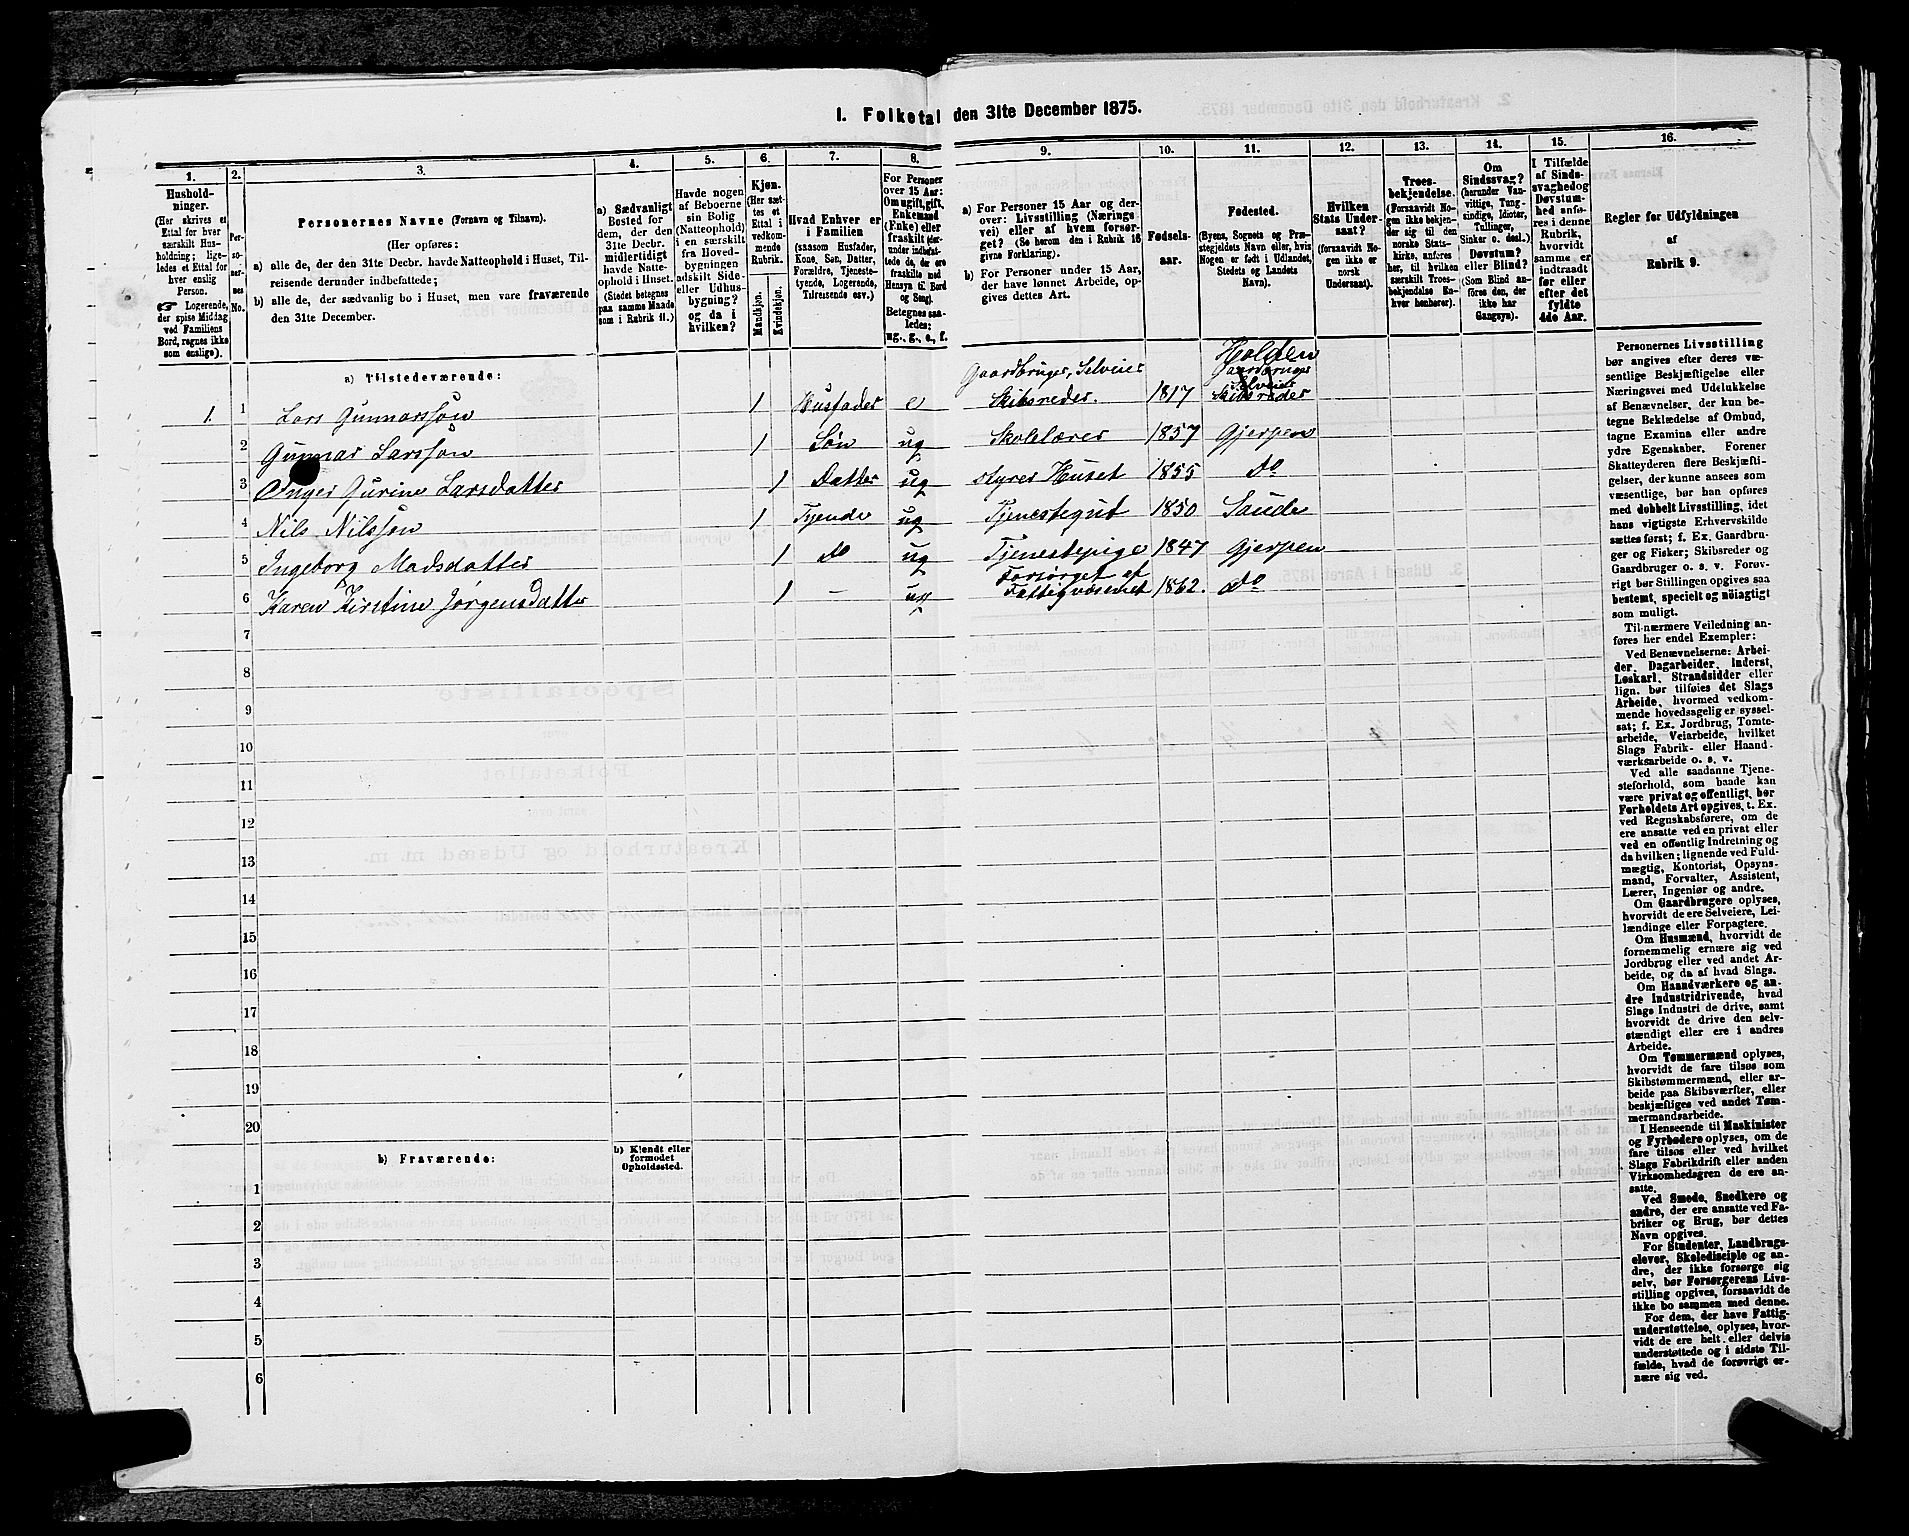 I. Folketal den 31te December 1875.
1.
2.
3.
4.
5.
6.
7.
8.
9.
10.
11.
12.
13.
14.
15.
16.
Hushold-
ninger.
(Her skrives et
Ettal for hver
særskilt Hus-
holdning; lige-
ledes et Ettal for
hver enslig
Person.
☞ Logerende,
der spise Middag
ved Familiens
Bord, regnes ikke
som enslige).
Per-
so-
ner-
nes
No.
Personernes Navne (Fornavn og Tilnavn).
(Her opføres:
a) alle de, der den 31te Decbr. havde Natteophold i Huset, Til-
reisende derunder indbefattede;
b) alle de, der sædvanlig bo i Huset, men vare fraværende
den 31te December.
a) Sædvanligt
Bosted for
dem, der den
31te Decbr.
midlertidigt
havde Natte-
ophold i Huset.
(Stedet betegnes
paa samme Maade
som i Rubrik 11.)
Havde nogen
af Beboerne
sin Bolig
(Natteophold)
i en særskilt
fra Hoved-
bygningen
adskilt Side-
eller Udhus-
bygning?
og da i
hvilken?
Kjøn.
(Her sæt-
tes et
Ettal i
vedkom-
mende
Rubrik.
Mandkjøn.
Kvindekjøn.
Hvad Enhver er
i Familien
(saasom Husfader,
Kone, Søn, Datter,
Forældre, Tjeneste-
tyende, Logerende,
Tilreisende osv.)
For Personer
over 15 Aar:
Om ugift, gift,
Enkemand
(Enke) eller
fraskilt (der-
under indbefat-
tede de, der ere
fraskilte med
Hensyn til Bord
og Seng).
Betegnes saa-
ledes:
ug., g., e., f.
a) For Personer 15 Aar og der-
over: Livsstilling (Nærings-
vei) eller af hvem forsør-
get? (Se herom den i Rubrik 16
givne Forklaring).
b) For Personer under 15 Aar,
der have lønnet Arbeide, op-
gives dettes Art.
Fødsels-
aar.
Fødested.
(Byens, Sognets og Præ-
stegjeldets Navn eller, hvis
Nogen er født i Udlandet,
Stedets og Landets
Navn).
Hvilken
Stats Under-
saat?
(forsaavidt No-
gen ikke er
norsk
Undersaat).
Troes-
bekjendelse.
(Forsaavidt No-
gen ikke bekjen-
der sig til den
norske Stats-
kirke, anføres
her, til hvilken
særskilt Troes-
bekjendelse En-
hver henhører).
Om
Sindssvag?
(herunder Van-
vittige, Tung-
sindige, Idioter,
Tullinger,
Sinker o. desl.)
Døvstum?
eller Blind?
(Som Blind an-
føres den, der
ikke har
Gangsyn).
I Tilfælde
af Sinds-
svaghed og
Døvstum-
hed anfø-
res i denne
Rubrik,
hvorvidt
samme er
indtraadt
før eller
efter det
fyldte
4de Aar.
Regler for Udfyldningen
af
Rubrik 9.
a) Tilstedeværende:
1. 1 Lars Gunnarssøn 1 Husfader e Gaardbruger, Selveier Skibsreder. 1817 Holden Gaardbruger Selveier Skibsreder
2 Gunnar Larssøn 1 Søn ug Skolelærer 1857 Gjerpen
3 Inger Gurine Larsdatter 1 Datter ug styrer Huset 1855 do
4 Nils Nilssøn 1 Tyende ug Tjenestegut 1850 Saude
5 Ingeborg Madsdatter 1 do ug Tjenestepige 1847 Gjerpen
6 Karen Kirstine Jørgensdatter 1 - ug Forsørget af Fattigvæsenet 1862. do
7
8
9
10
11
12
13
14
15
16
17
18
19
20
b) Fraværende:
b) Kjendt eller
formodet
Opholdssted.
1
2
3
4
5
6
Personernes Livsstilling
bør angives efter deres væ-
sentlige Beskjæftigelse eller
Næringsvei med Udelukkelse
af Benævnelser, der kun be-
tegne Beklædelse af Ombud,
tagne Examina eller andre
ydre Egenskaber. Forener
Skatteyderen flere Beskjæfti-
gelser, der kunne ansees som
væsentlige, bør han opføres
med dobbelt Livsstilling, idet
hans vigtigste Erhvervskilde
sættes først; f. Ex. Gaardbru-
ger og Fisker; Skibsreder og
Gaardbruger o. s. v. Forøv-
rigt bør Stillingen opgives saa
bestemt, specielt og nøiagtigt
som muligt.
Til nærmere Veiledning an-
føres her endel Exempler:
Ved Benævnelserne: Arbei-
der, Dagarbeider, Inderst,
Løskarl, Strandsidder eller
lign. bør tilføies det Slags
Arbeide, hvormed vedkom-
mende hovedsagelig er syssel-
sat; f. Ex. Jordbrug, Tomte-
arbeide, Veiarbeide, hvilket
Slags Fabrik- eller Haand-
værksarbeide o. s. v.
Ved alle saadanne Tjene-
steforhold, som baade kan
være privat og offentligt, bør
Forholdets Art opgives, t. Ex.
ved Regnskabsførere, om de
ere ansatte ved en privat eller
ved en offentlig Indretning og
da hvilken; lignende ved Fuld-
mægtig, Kontorist, Opsyns-
mand, Forvalter, Assistent,
Lærer, Ingeniør og andre.
Om Gaardbrugere oplyses,
hvorvidt de ere Selveiere, Lei-
lændinge eller Forpagtere.
Om Husmænd, hvorvidt de
fornemmelig ernære sig ved
Jordbrug eller ved andet Ar-
beide, og da af hvad Slags.
Om Haandværkere og an-
dre Industridrivende, hvad
Slags Industri de drive, samt
hvorvidt de drive den selv-
stændigt eller ere i andres
Arbeide.
Om Tømmermænd oplyses,
hvorvidt de fare tilsøs som
Skibstømmermænd, eller ar-
beide paa Skibsværfter, eller
beskjæftiges ved andet Tøm-
mermandsarbeide.
I Henseende til Maskinister
og Fyrbødere oplyses, om de
fare tilsøs eller ved hvilket
Slags Fabrikdrift eller anden
Virksomhedsgren de ere an-
satte.
Ved Smede, Snedkere og
andre, der ere ansatte ved Fa-
briker og Brug, bør dettes
Navn opgives.
For Studenter, Landbrugs-
elever, Skoledisciple og an-
dre, der ikke forsørge sig
selv, bør Forsørgerens Livs-
stilling opgives, forsaavidt de
ikke bo sammen med denne.
For dem, der have Fattig-
understøttelse, oplyses, hvor-
vidt de ere helt eller delvis
understøttede og i sidste Til-
fælde, hvad de forøvrigt er-
nære sig ved.